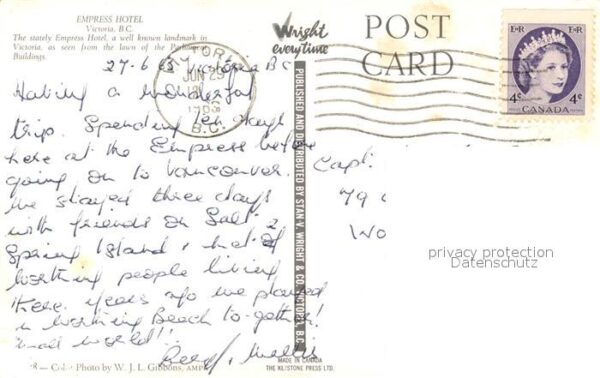 EMPRESS HOTEL
Victoria, B.C.
The stately Empress Hotel, a well known landmark in
Victoria, as seen from the lawn of the Parliament
Buildings.
27-6 Victoria BC
Having a wonderful
trip. Spending ten days
here at the Empress before
going on to Vancouver.
We stayed three days
with friends on Salt
Spring Island & met 2 of
Worthing people living
there. Years ago we played
in Worthing Beach to-gether!
Small world!!
Wright
everytime
POST
CARD
VICTORIA
JUN 29
B.C.
PUBLISHED AND DISTRIBUTED BY STAN V. WRIGHT & CO. VICTORIA, B.C.
E II R E II R
4c 4c
CANADA
Capt.
79
Wo
privacy protection
Datenschutz
Color Photo by W. J. L. Gibbons, AMPA
MADE IN CANADA
THE KL/STONE PRESS LTD.